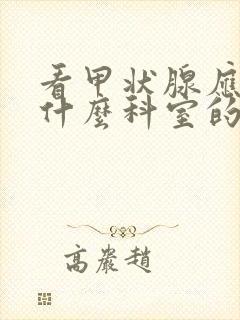 看甲状腺应
什麼科室的
高巖趙